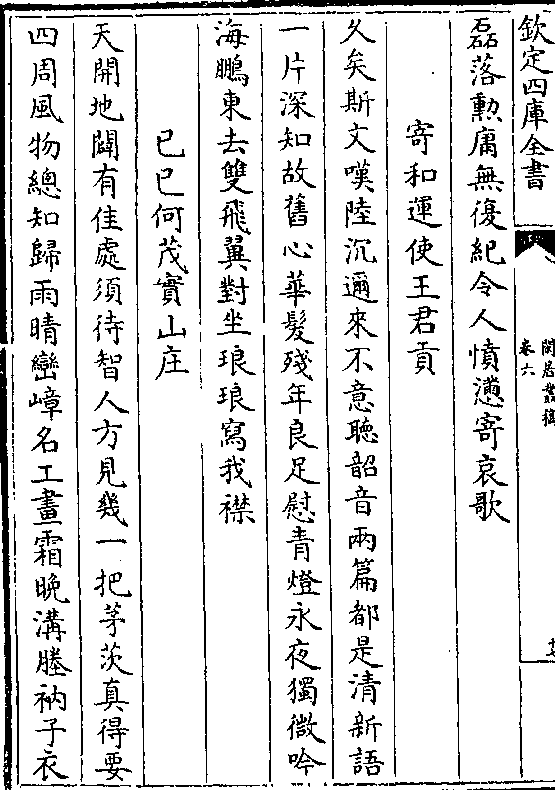 欽定四庫全書
閒居叢稿
卷六
磊落勲庸無復紀令人憤懣寄哀歌
寄和運使王君貢
久矣斯文嘆陸沉邇來不意聽韶音兩篇都是清新語
一片深知故舊心華髮殘年良足慰青燈永夜獨微吟
海鵬東去雙飛翼對坐琅琅寫我襟
已巳何茂實山庄
天開地闢有佳處須待智人方見幾一把茅茨真得要
四周風物總知歸雨晴巒嶂名工畫霜晚溝塍衲子衣